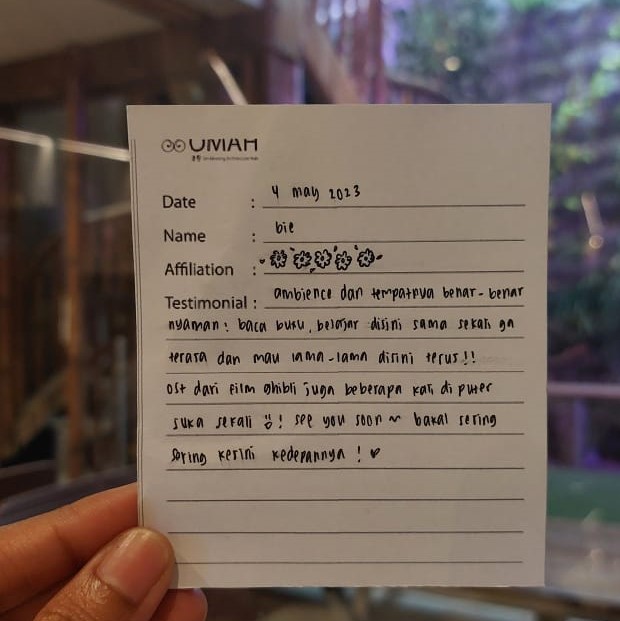 UMAH
Date : 4 may 2023
Name : bie
Affiliation :
Testimonial : ambience dan tempatnya benar-benar
nyaman! baca buku, belajar disini sama sekali ga
terasa dan mau lama-lama disini terus!!
ost dari film ghibli juga beberapa kali di puter
suka sekali! see you soon ~ bakal sering
sering kesini kedepannya! ♥